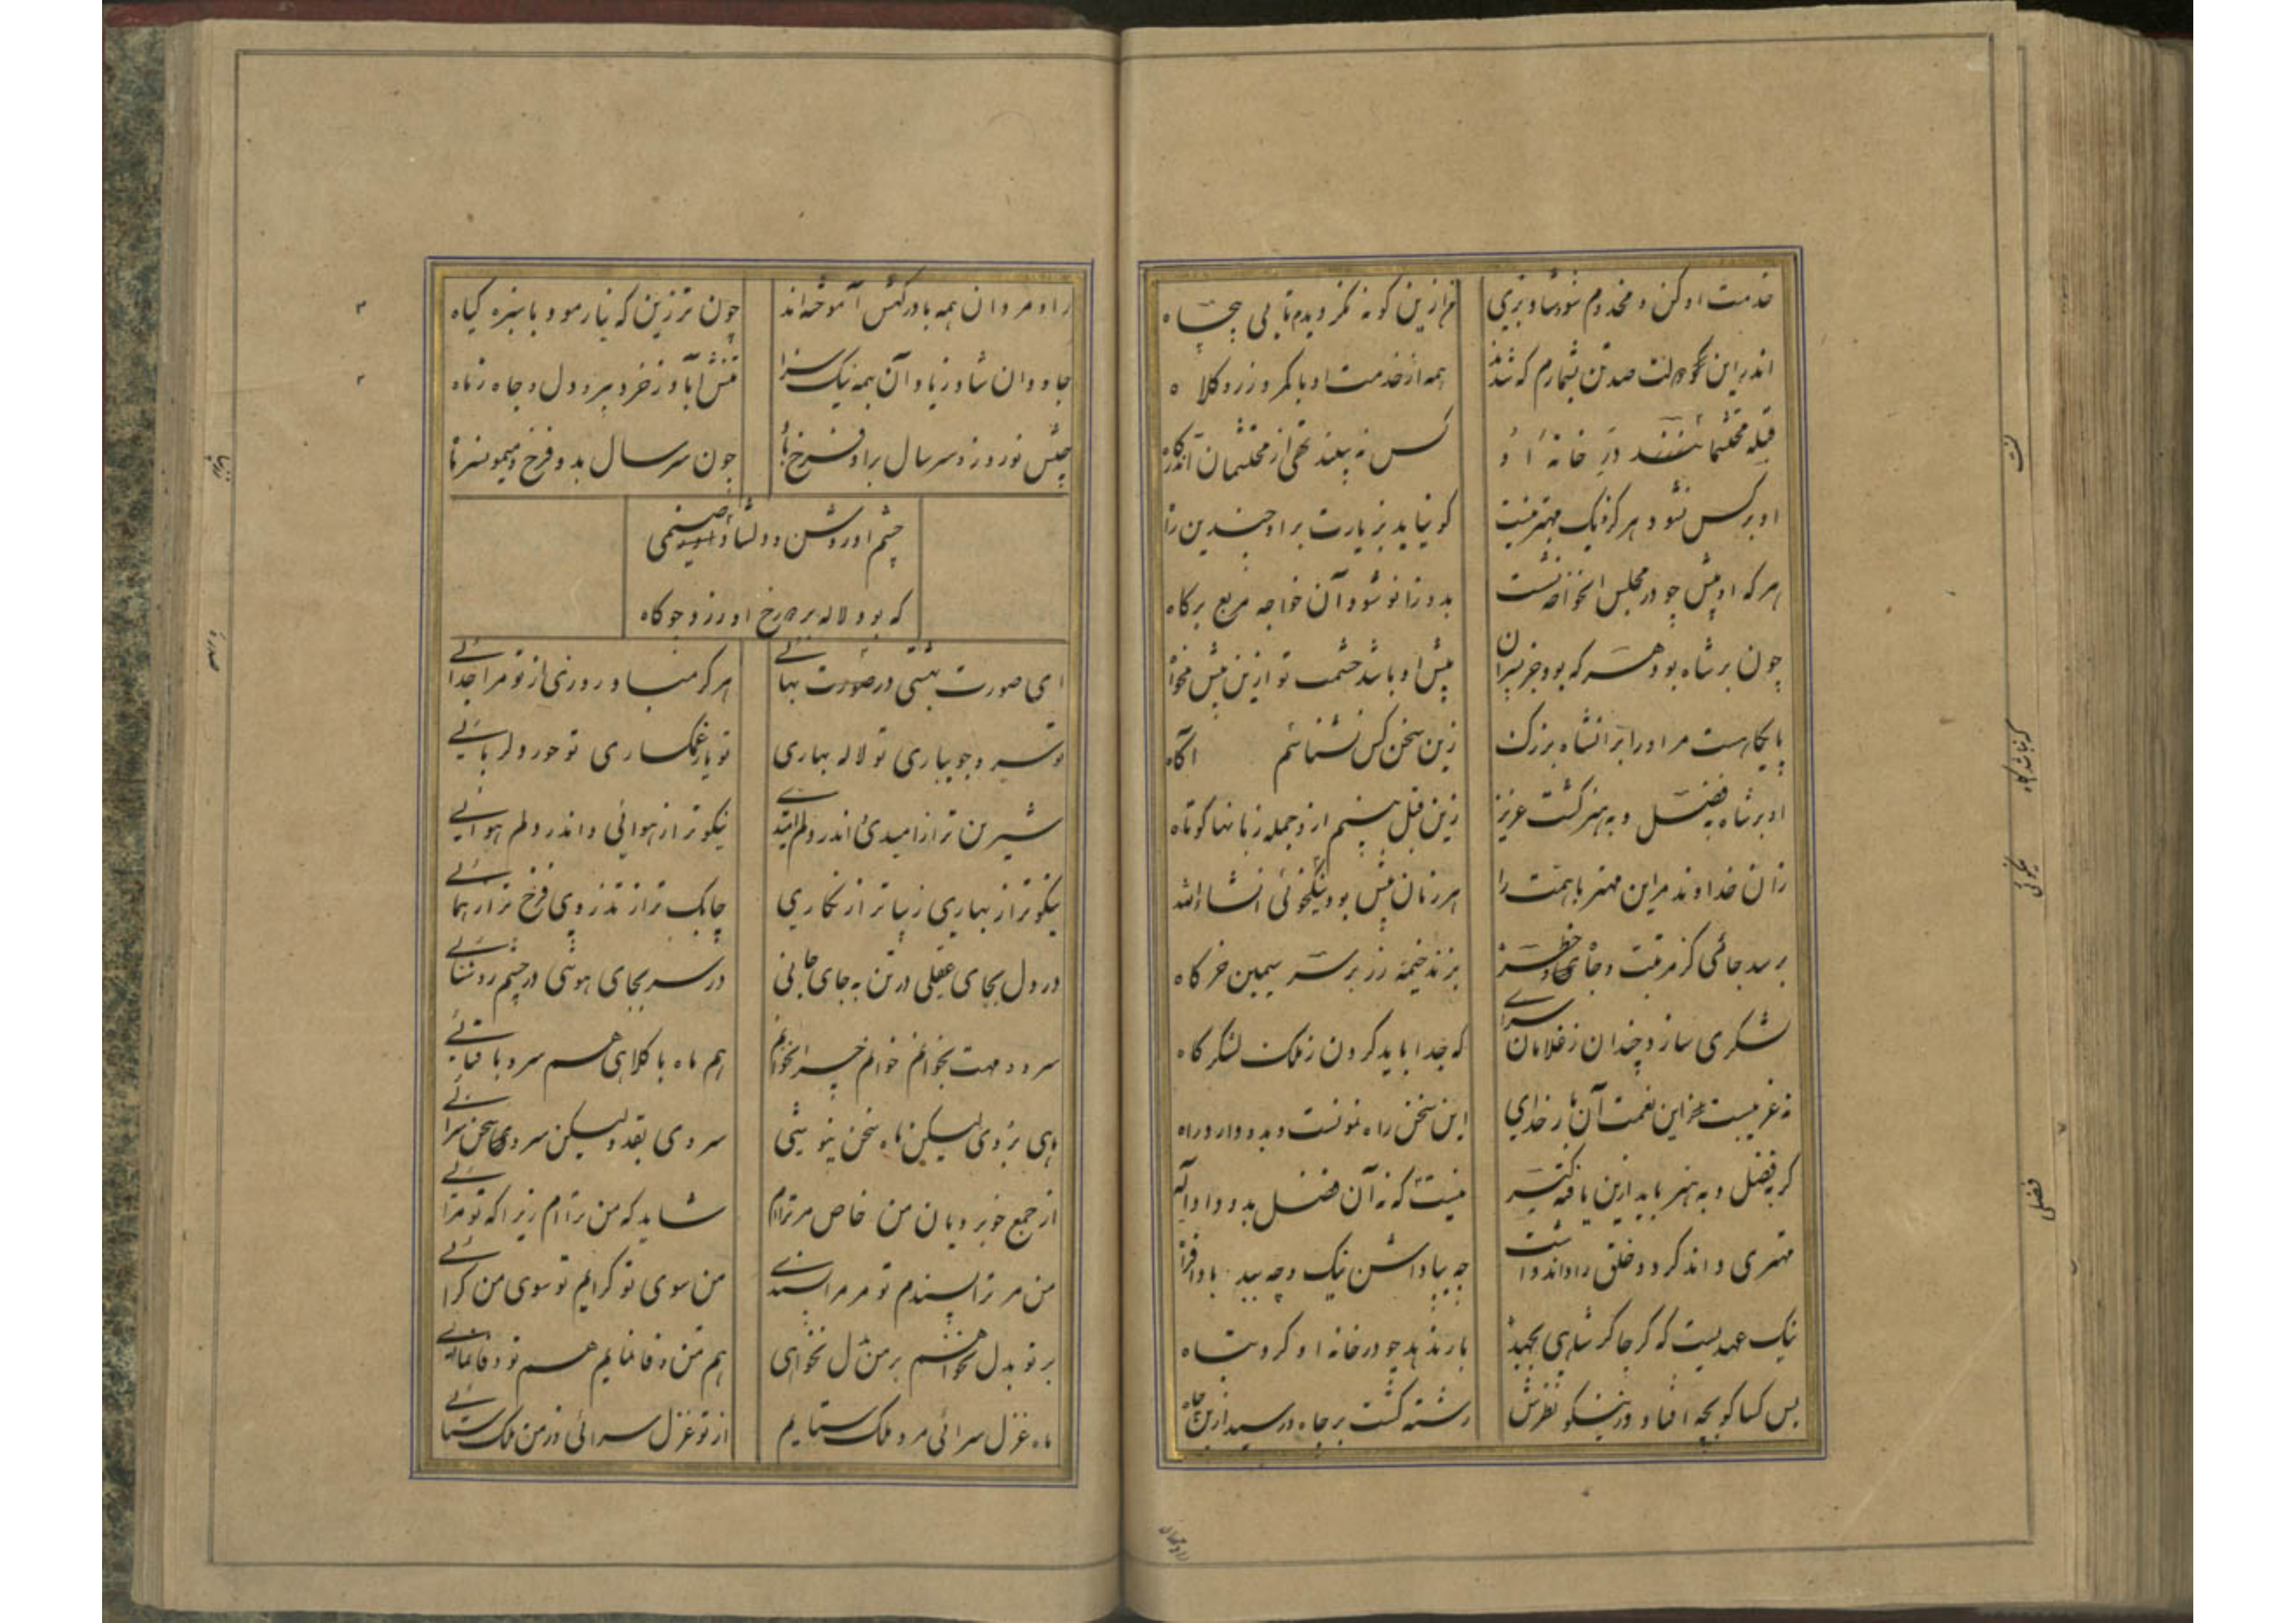 خدمت او کن و مخدوم شو و شاد بزی
من ازین گونه مگر دیدم تا بی پنجاه
اندر این دولت صد تن بشمارم که شدند
همه از خدمت او با کمر و زر و کلاه
قبله محتشمانند در خانه او
کس نه بیند تهی از محتشمان آن درگاه
او بر کس نشود هر کز یک مهتر نیست
کو نیاید بزیارت بر او چندین راه
هر که او پیش چو در مجلس آنخواجه نشست
بدو زانو شود آن خواجه مربع برگاه
چون بر شاه بود هر که بود جز پسران
پیش او باشد حشمت تو ازین بیش مخواه
پایگاهست مر او را بر آنشاه بزرک
زین سخن کس نشناسم آگاه
او بر شاه بفضل و به هنر گشت عزیز
زین قبل بینم ازو جمله زبانها کوتاه
زان خداوند مر این مهتر با همت را
هر زمان بیش بود نیکخوئی انشاء الله
برسد جائی کز مرتبت و جاه و خطر
بزند خیمه زر بر سر سیمین خرگاه
لشکری سازد چندان ز غلامان سرای
که جدا باید کردن ز ملک لشکرگاه
نه غریبست ازین نعمت آن بار خدای
این سخن راه نمونست و بدو دارد راه
گر بفضل و به هنر باید ازین یافته تر
نیست که نه آن فضل بدو داد اله
مهتری داند کرد و خلق را داند داشت
چه بپاداشن نیک و چه ببد بادافراه
نیک عهدیست که گر چاکر شاهی بجهد
باز ندهد چو در خانه او کرد پناه
بس کسا کو بچه افتاد و ز نیکو نظرش
رشته گشت بر چاه و رسید ازین چاه
راد مردان همه با درگهش آموخته اند
چون ترزین که نیارمود با سبزه گیاه
جاودان شاد زیاد آن بهمه نیک سزا
تنش آباد ز خرد پیر و دل و جاه زناه
جشن نوروز و سر سال بر او فرخ باد
چون سر سال بدو فرخ و میمون سر ماه
چشم او روشن و دلشاد بروی صنمی
که بود لاله بر رخ او زرد چو کاه
ای صورت بهشتی در صورت بهائی
هرگز مباد روزی از تو مرا جدائی
تو سرو جویباری تو لاله بهاری
تو یار غمگساری تو حور دلربائی
شیرین تر از امیدی اندر دلم امیدی
نیکوتر از هوائی و اندر دلم هوائی
نیکوتر از بهاری زیباتر از نگاری
چابک تر از تذروی فرخ تر از همائی
در دل بجای عقلی در تن به جای جانی
در سر بجای هوشی در چشم روشنائی
سرو و مهت بخوانم خوانم چرا نخوانم
هم ماه با کلاهی هم سرو با قبائی
ماهی بروی لیکن ماه سخن نیوشی
سروی بقد ولیکن سروی سخن سرائی
از جمع خوبرویان من خاص مر ترا ام
شاید که من ترا ام زیرا که تو مرائی
من مر ترا پسندم تو مر مرا پسندی
من سوی تو گرایم تو سوی من گرائی
بر تو بدل نخواهم بر من بدل نخواهی
هم من وفا نمایم هم تو وفا نمائی
ماه غزل سرائی مرد ملک ستایم
از تو غزل سرائی وز من ملک ستائی